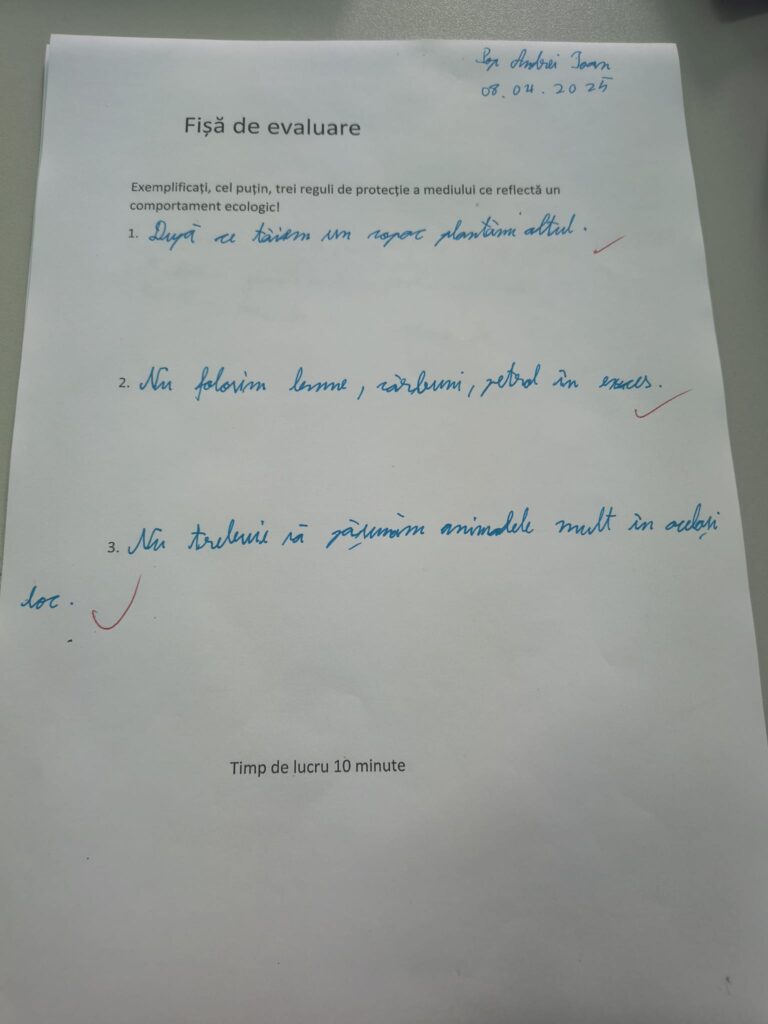 Pop Andrei Ioan
08.04.2025
Fișă de evaluare
Exemplificați, cel puțin, trei reguli de protecție a mediului ce reflectă un
comportament ecologic!
1. După ce tăiem un copac plantăm altul.
2. Nu folosim lemne, cărbuni, petrol în exces.
3. Nu trebuie să pășunăm animalele mult în același
loc.
Timp de lucru 10 minute